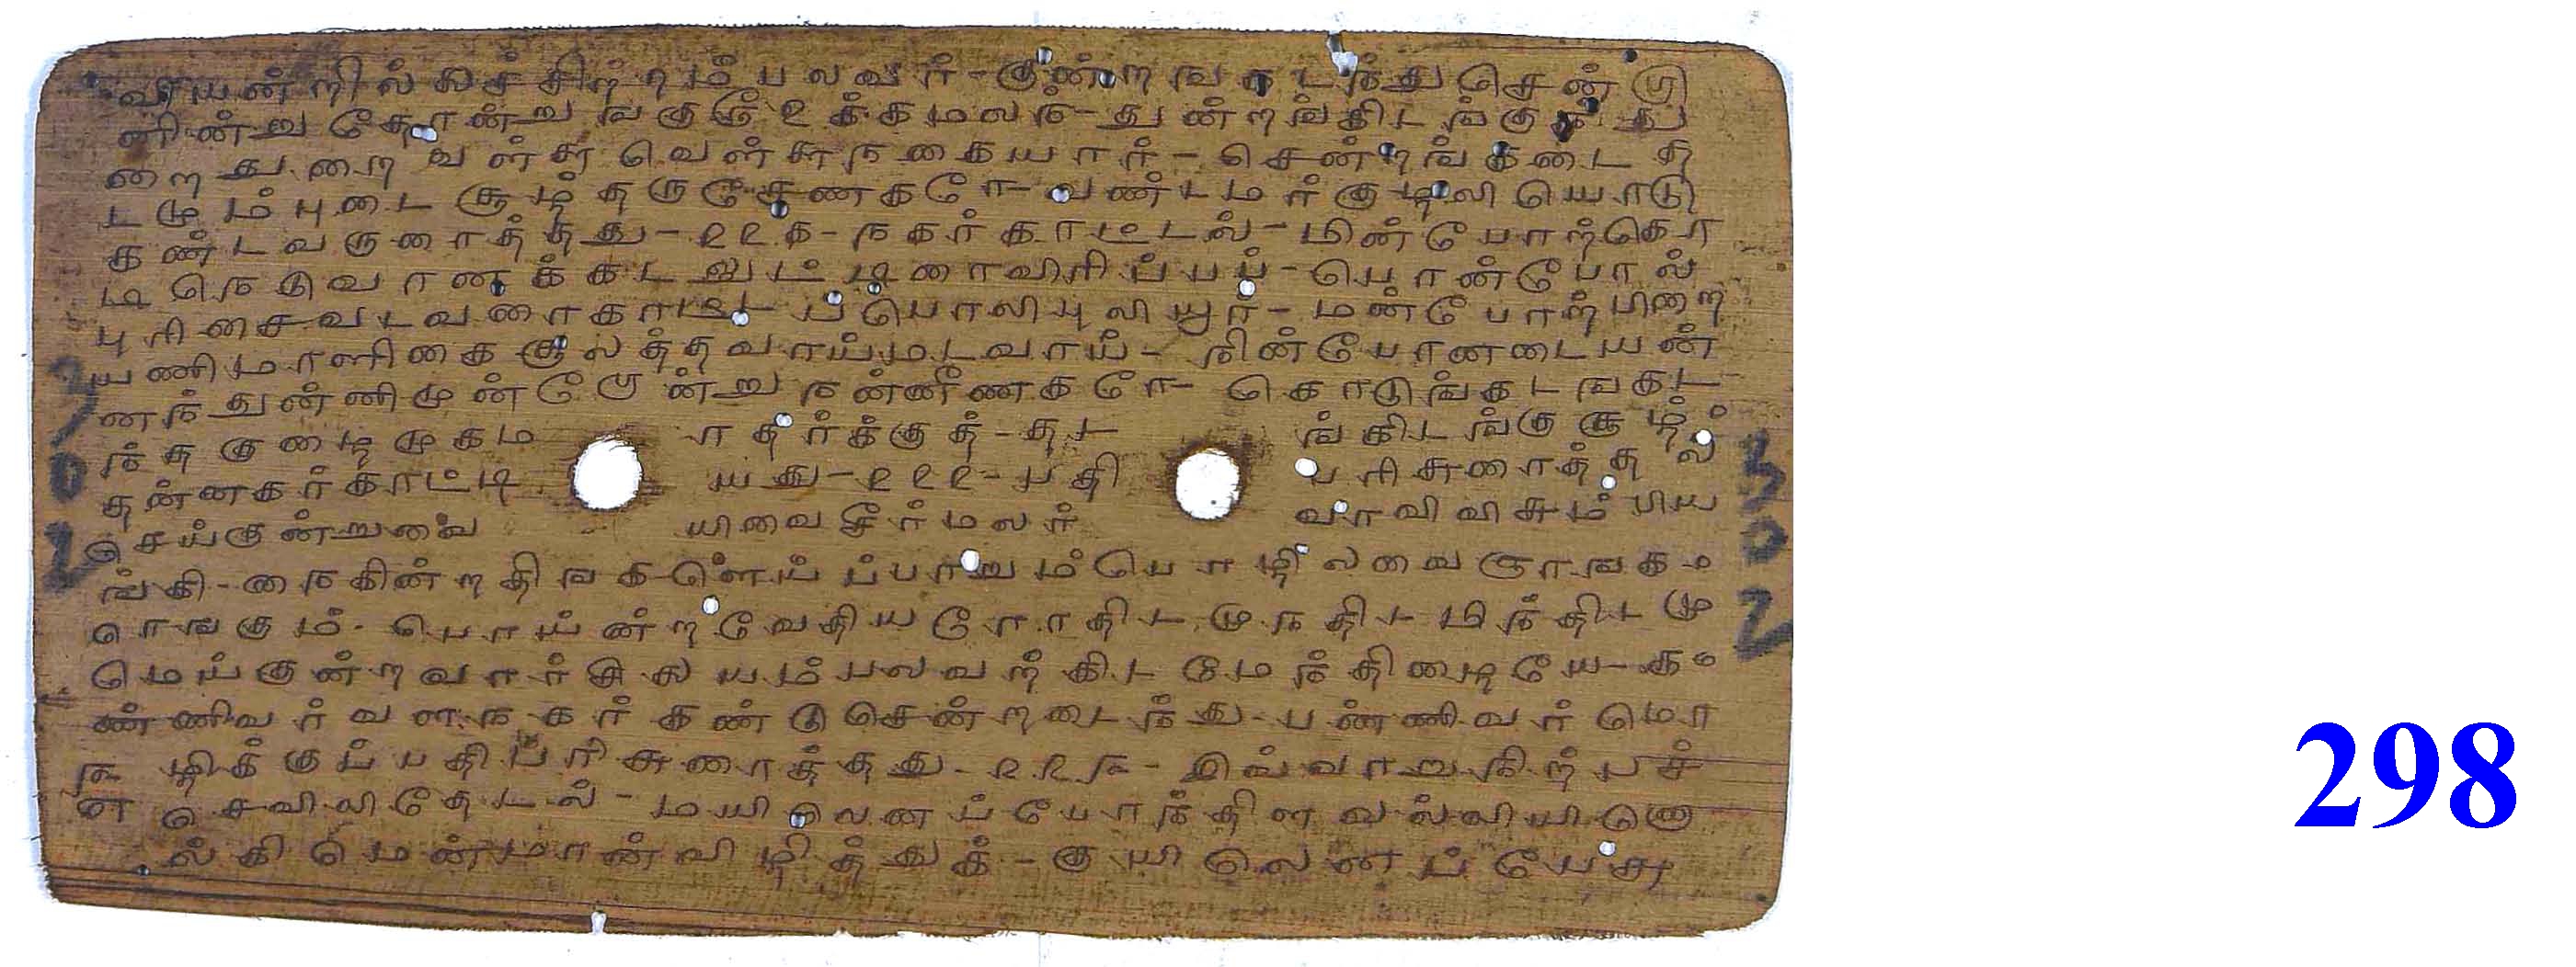 வியன்றில்லச்சிற்றம்பலவர்-குன்றங்கடந்துசென்றா
னின்றுதோன்றுங்குரூஉக்கமலந-துன்றங்கிடங்குந்து
றைதுறைவள்ளைவெள்ளைநகையார்-சென்றங்கடைத
டமும்புடைசூழ்தருசேணகரே-வண்டமர்குழலியொடு
கண்டவருரைத்தது-௨௨௧-நகர்காட்டல்-மின்போற்கொ
டிநெடுவானக்கடலுட்டிரைவிரிப்பப்-பொன்போல்
புரிசைவடவரைகாட்டப்பொலிபுலியூர்-மன்போற்பிறை
யணிமாளிகைசூலத்தவாய்மடவாய்-நின்போனடையன்
னந்துன்னிமுன்றோன்றுநன்னீணகரே-கொடுங்கடங்கட
ந்தகுழைமுகமாதர்க்குத்-தடங்கிடங்குசூழ்
தன்னகர்காட்டியது-௨௨௨-பதிபரிசுரைத்தல்
செய்குன்றுவையிவைசீர்மலர்வாவிவிசும்பிய
ங்கி-நைகின்றதிங்களெய்ப்பாறும்பொழிலவைஞாங்க
ரெங்கும்-பொய்ன்றவேதியரோதிடமுநதிடமிந்திடமு
மெய்குன்றவார்சிலயம்பலவற்கிடமேந்திழையே-க
ண்ணிவர்வளநகர்கண்டுசென்றடைந்து-பண்ணிவர்மொ
ழிக்குப்பதிபரிசுரைத்தது-௨௨௩-இவ்வாறுநிற்பச்
செவிலிதேடல்-மயிலெனப்போந்திளவல்லியி
ல்கிமென்மான்விழித்துக்-குயிலெனப்பேசு
302
302
298